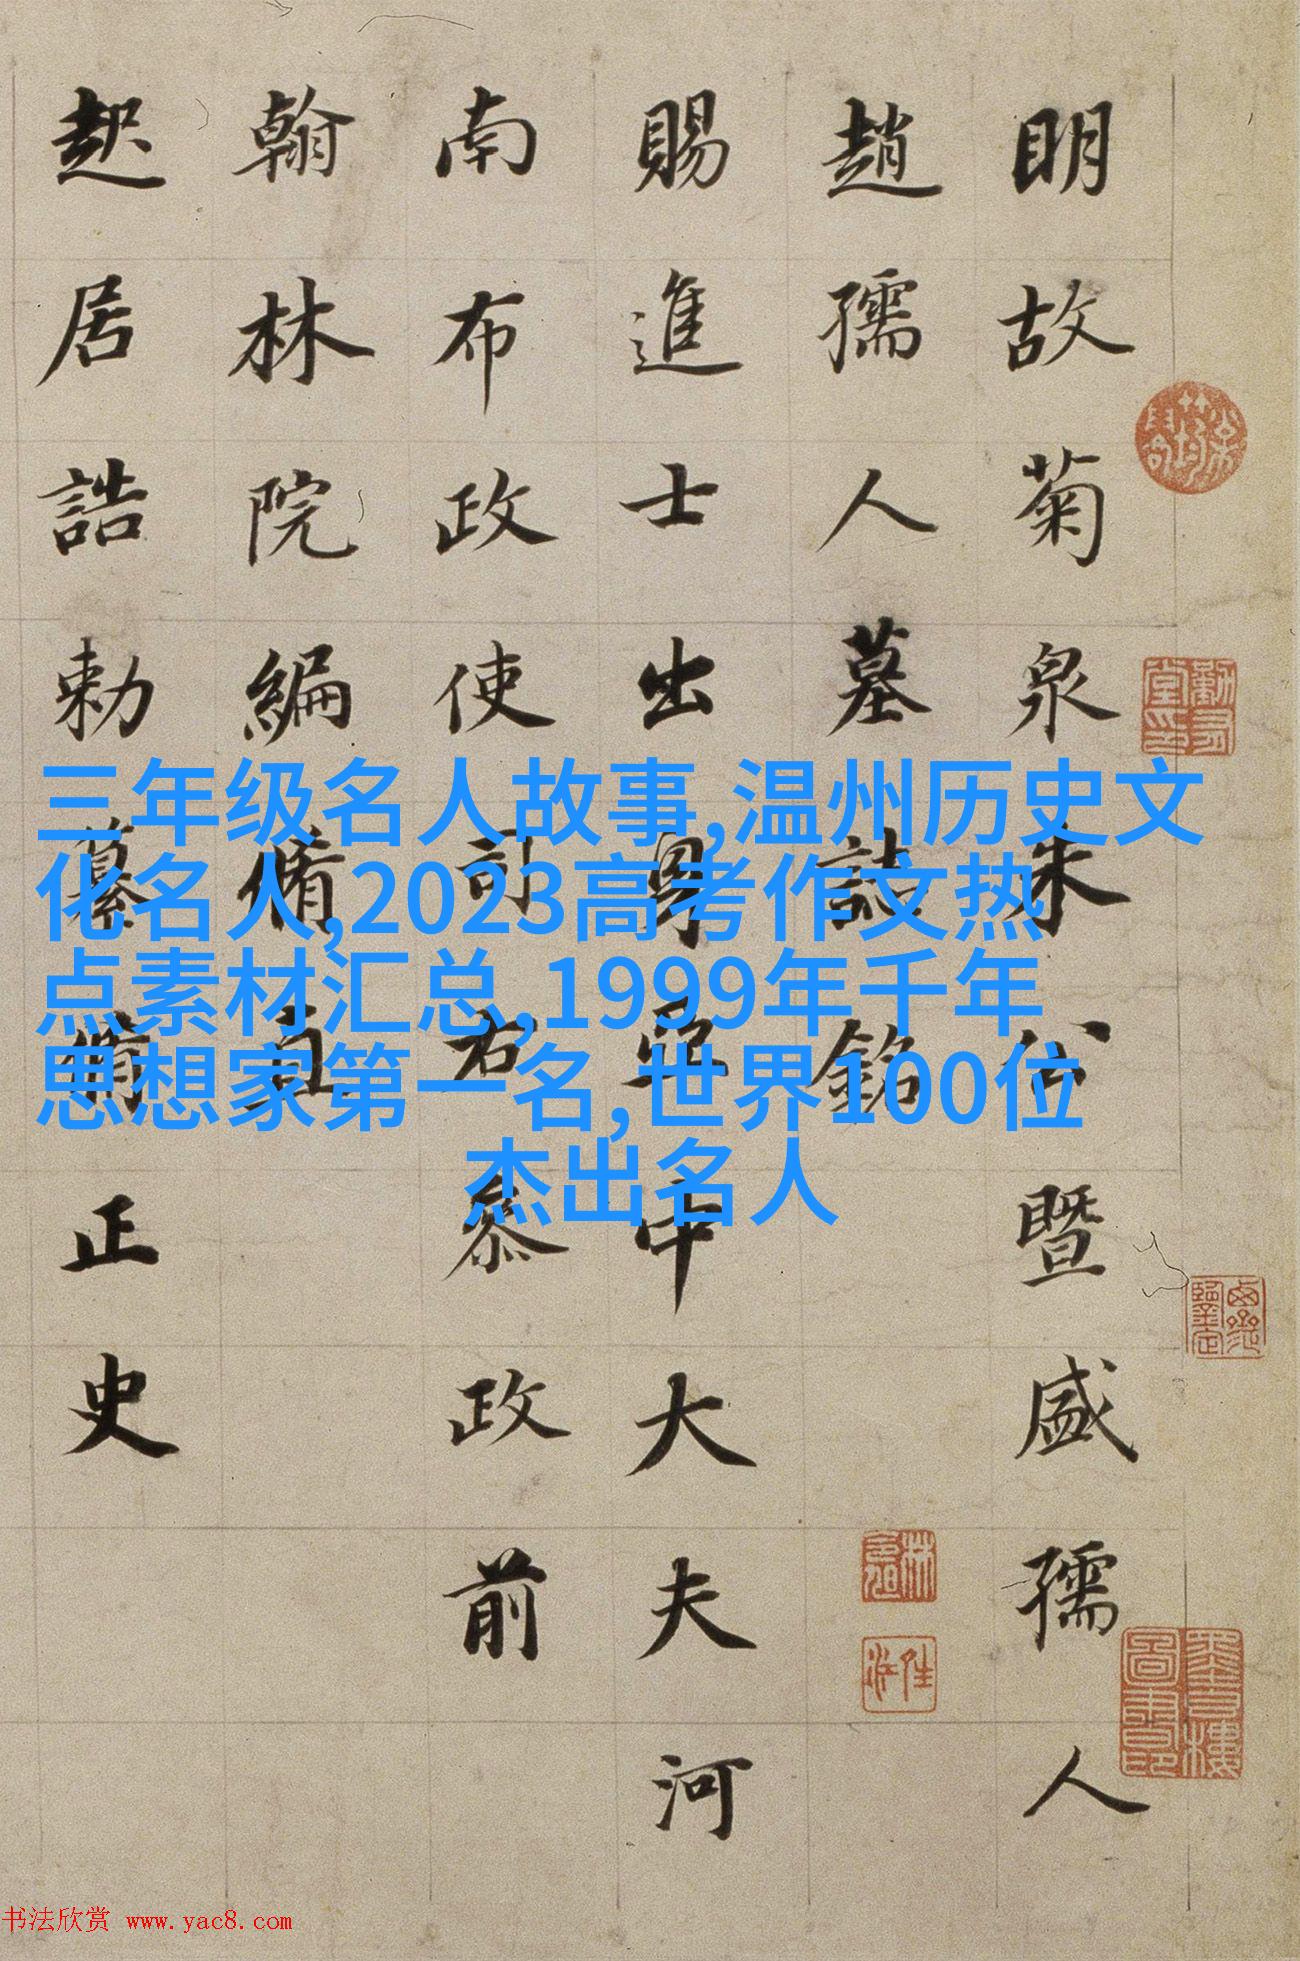 明故菊泉朱公暨盛孺人
趙孺人墓誌銘
賜進士出身亞中大夫河
南布政使司右叅政前
翰林院編脩直
起居誥勅纂脩正史
三年级名人故事,温州历史文
化名人,2023高考作文热
点素材汇总,1999年千年
思想家第一名,世界100位
杰出名人
书法欣赏 www.yac8.com